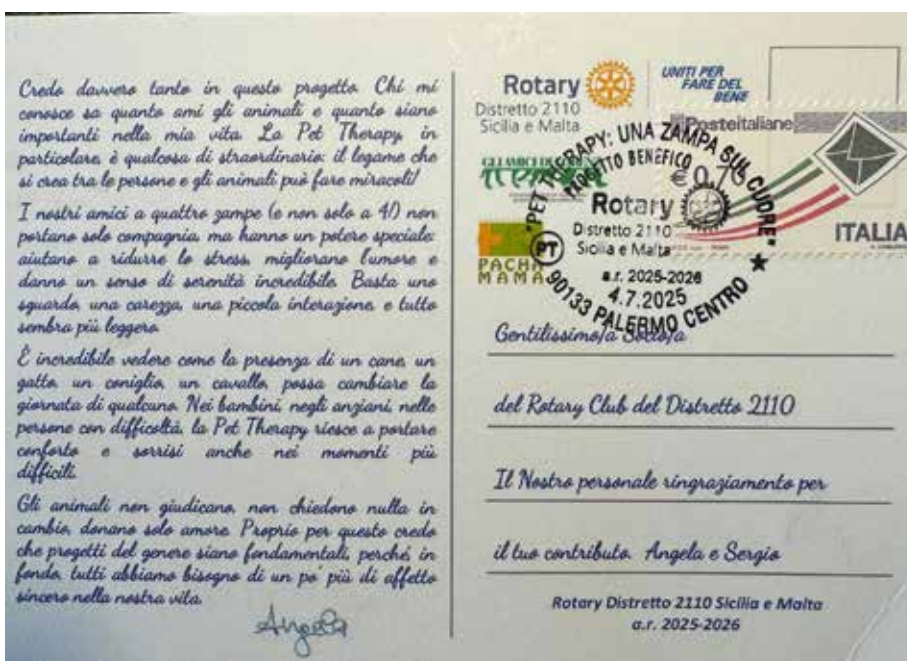 Credo davvero tanto in questo progetto. Chi mi
conosce sa quanto ami gli animali e quanto siano
importanti nella mia vita. La Pet Therapy, in
particolare, è qualcosa di straordinario: il legame che
si crea tra le persone e gli animali può fare miracoli!
I nostri amici a quattro zampe (e non solo a 4!) non
portano solo compagnia, ma hanno un potere speciale:
aiutano a ridurre lo stress, migliorano l'umore e
danno un senso di serenità incredibile. Basta uno
sguardo, una carezza, una piccola interazione, e tutto
sembra più leggero.
È incredibile vedere come la presenza di un cane, un
gatto, un coniglio, un cavallo, possa cambiare la
giornata di qualcuno. Nei bambini, negli anziani, nelle
persone con difficoltà, la Pet Therapy riesce a portare
conforto e sorrisi anche nei momenti più
difficili.
Gli animali non giudicano, non chiedono nulla in
cambio, donano solo amore. Proprio per questo credo
che progetti del genere siano fondamentali, perché, in
fondo, tutti abbiamo bisogno di un po' più di affetto
sincero nella nostra vita.
Angela
Rotary
Distretto 2110
Sicilia e Malta
UNITI PER
FARE DEL
BENE
Posteitaliane
ITALIA
PACHA
MAMA
"PET THERAPY: UNA ZAMPA SUL CUORE"
PROGETTO BENEFICO
Rotary
Distretto 2110
Sicilia e Malta
PT
a.r. 2025-2026
4.7.2025
90133 PALERMO CENTRO
Gentilissimo/a Socio/a
del Rotary Club del Distretto 2110
Il Nostro personale ringraziamento per
il tuo contributo. Angela e Sergio
Rotary Distretto 2110 Sicilia e Malta
a.r. 2025-2026